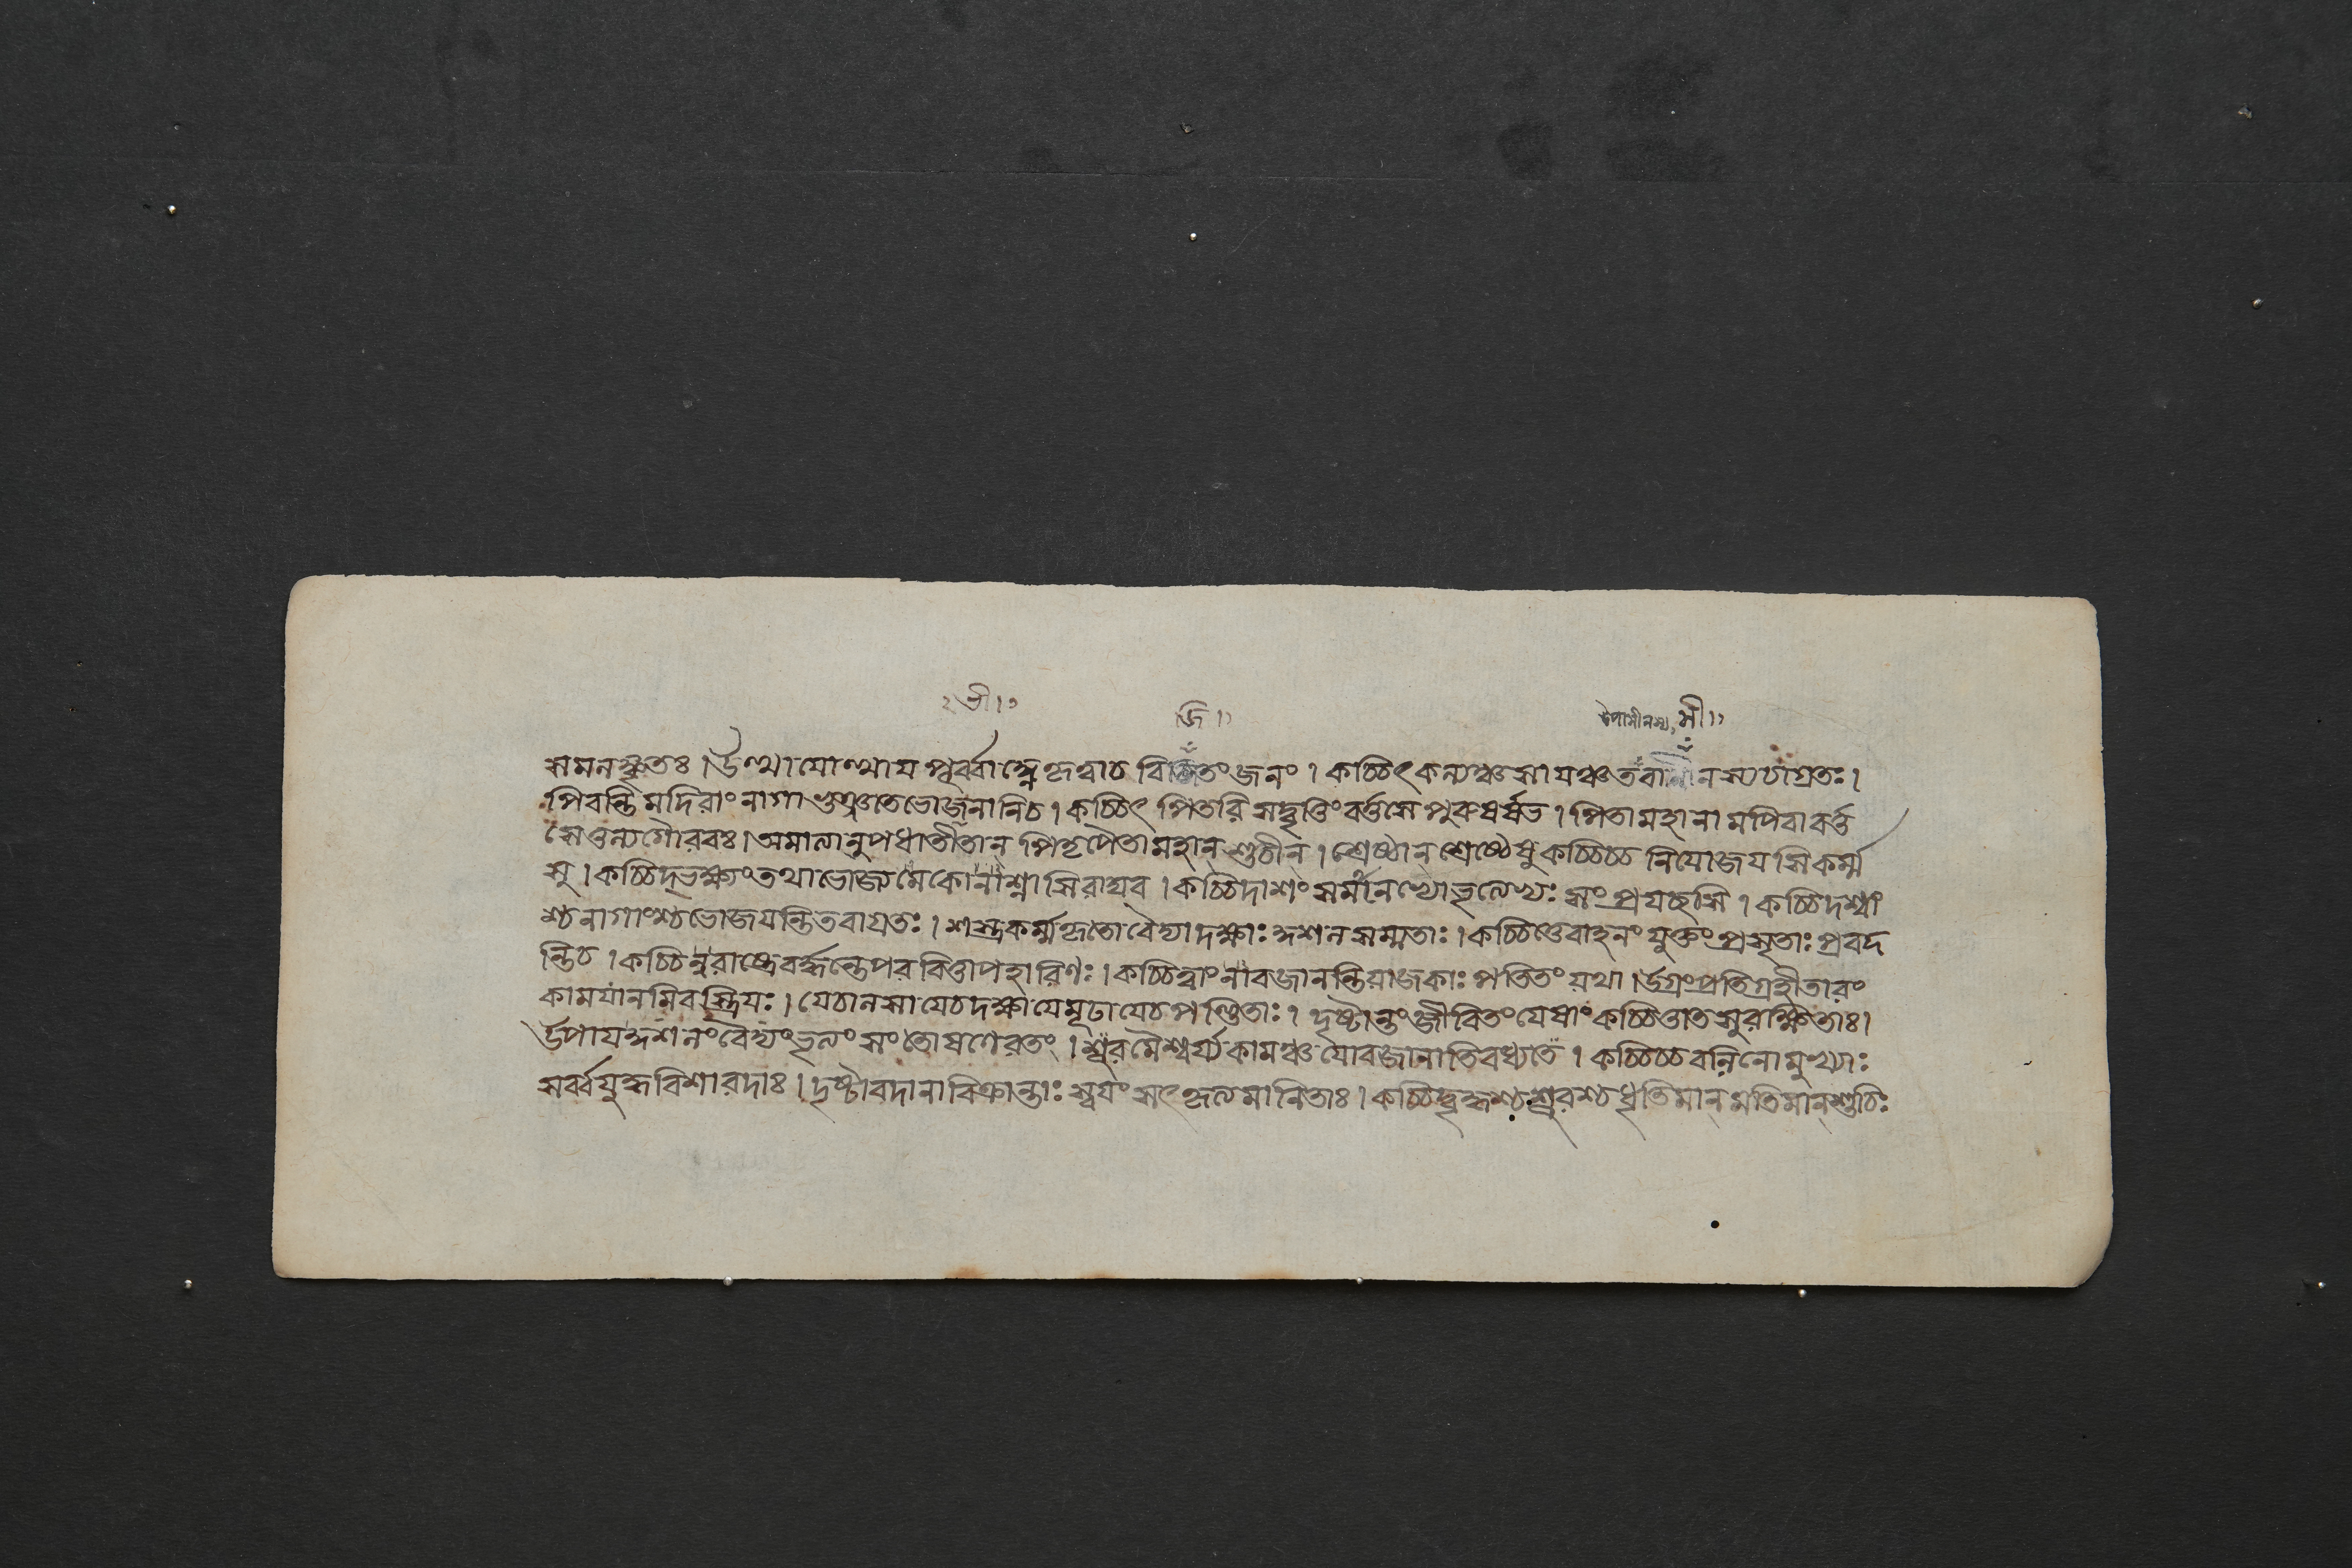 ভী।১
জি।১
বোসীনস্য, সী।১
সমনঙ্কৃতঃ। উত্থাযোত্থায পূর্ব্বাহ্ণেকৃত্বাচ বিজিতংজনং। কচ্চিৎ কল্যঞ্চসাযঞ্চতবাসীনস্যচাগ্রতঃ।
পিবন্তি মদিরাং নাগা ভুঞ্জতেভোজনানিচ। কচ্চিৎ পিতরি সদ্বৃত্তিং বর্ত্তসে পুরুষর্ষভ। পিতামহানামপিবাবর্ত্ত
সেতুল্যগৌরবঃ। অমাত্যানুপধাতীতান্ পিতৃপৈতামহান্ শুচীন্। শ্রেষ্ঠান্ শ্রেষ্ঠেষু কচ্চিচ্চ নিযোজযসিকর্ম্ম
সু। কচ্চিদ্ভক্ষ্যংতথাভোজ্যমেকোনাশ্নাসিরাঘব। কচ্চিদাশং সমানেভ্যোভৃত্যেভ্যঃ সংপ্রযচ্ছসি। কচ্চিদশ্বাং
শ্চনাগাংশ্চভোজযন্তিতবাগ্রতঃ। শস্ত্রকর্ম্মকৃতো বৈদ্যাদক্ষাঃ কুশল সম্মতাঃ। কচ্চিত্তেবাহনং যুক্তংপ্রসৃতাঃ প্রবদ
ন্তিচ। কচ্চিন্নরাষ্ট্রেবর্দ্ধন্তেপরবিত্তাপহারিণঃ। কচ্চিত্ত্বাং নাবজানন্তিযাজকাঃ পতিতং যথা। উগ্রংপ্রতিগ্রহীতারং
কামযানমিবস্ত্রিযঃ। যেচালসা যেচদক্ষাযেমূঢাযেচপণ্ডিতাঃ। দৃষ্টান্তংজীবিতংযেষাং কচ্চিত্তাতসুরক্ষিতাঃ।
উপাযকুশলংবৈদ্যংভৃত্যং সংতোষণেরতং। শূরমৈশ্বর্য্যকামঞ্চ যোবজানাতিবধ্যতে। কচ্চিচ্চবলিনো মুখ্যাঃ
সর্ব্বযুদ্ধবিশারদাঃ। দৃষ্টাবদানাবিক্রান্তাঃ স্বযং সৎকৃত্যমানিতাঃ। কচ্চিদ্বৃদ্ধশ্চশূরশ্চধৃতিমান্ মতিমান্ শুচিঃ